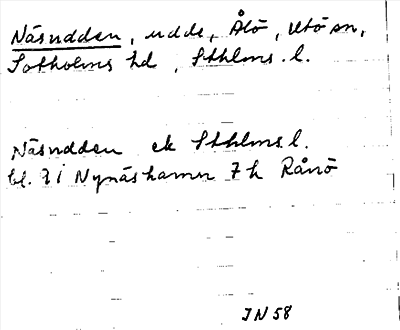 Näsudden, udde, Ålö, Utö sn,
Sotholms hd, Sthlms. l.
Näsudden ek Sthlms l.
bl. 7 i Nynäshamn 7 h Rånö
IN 58